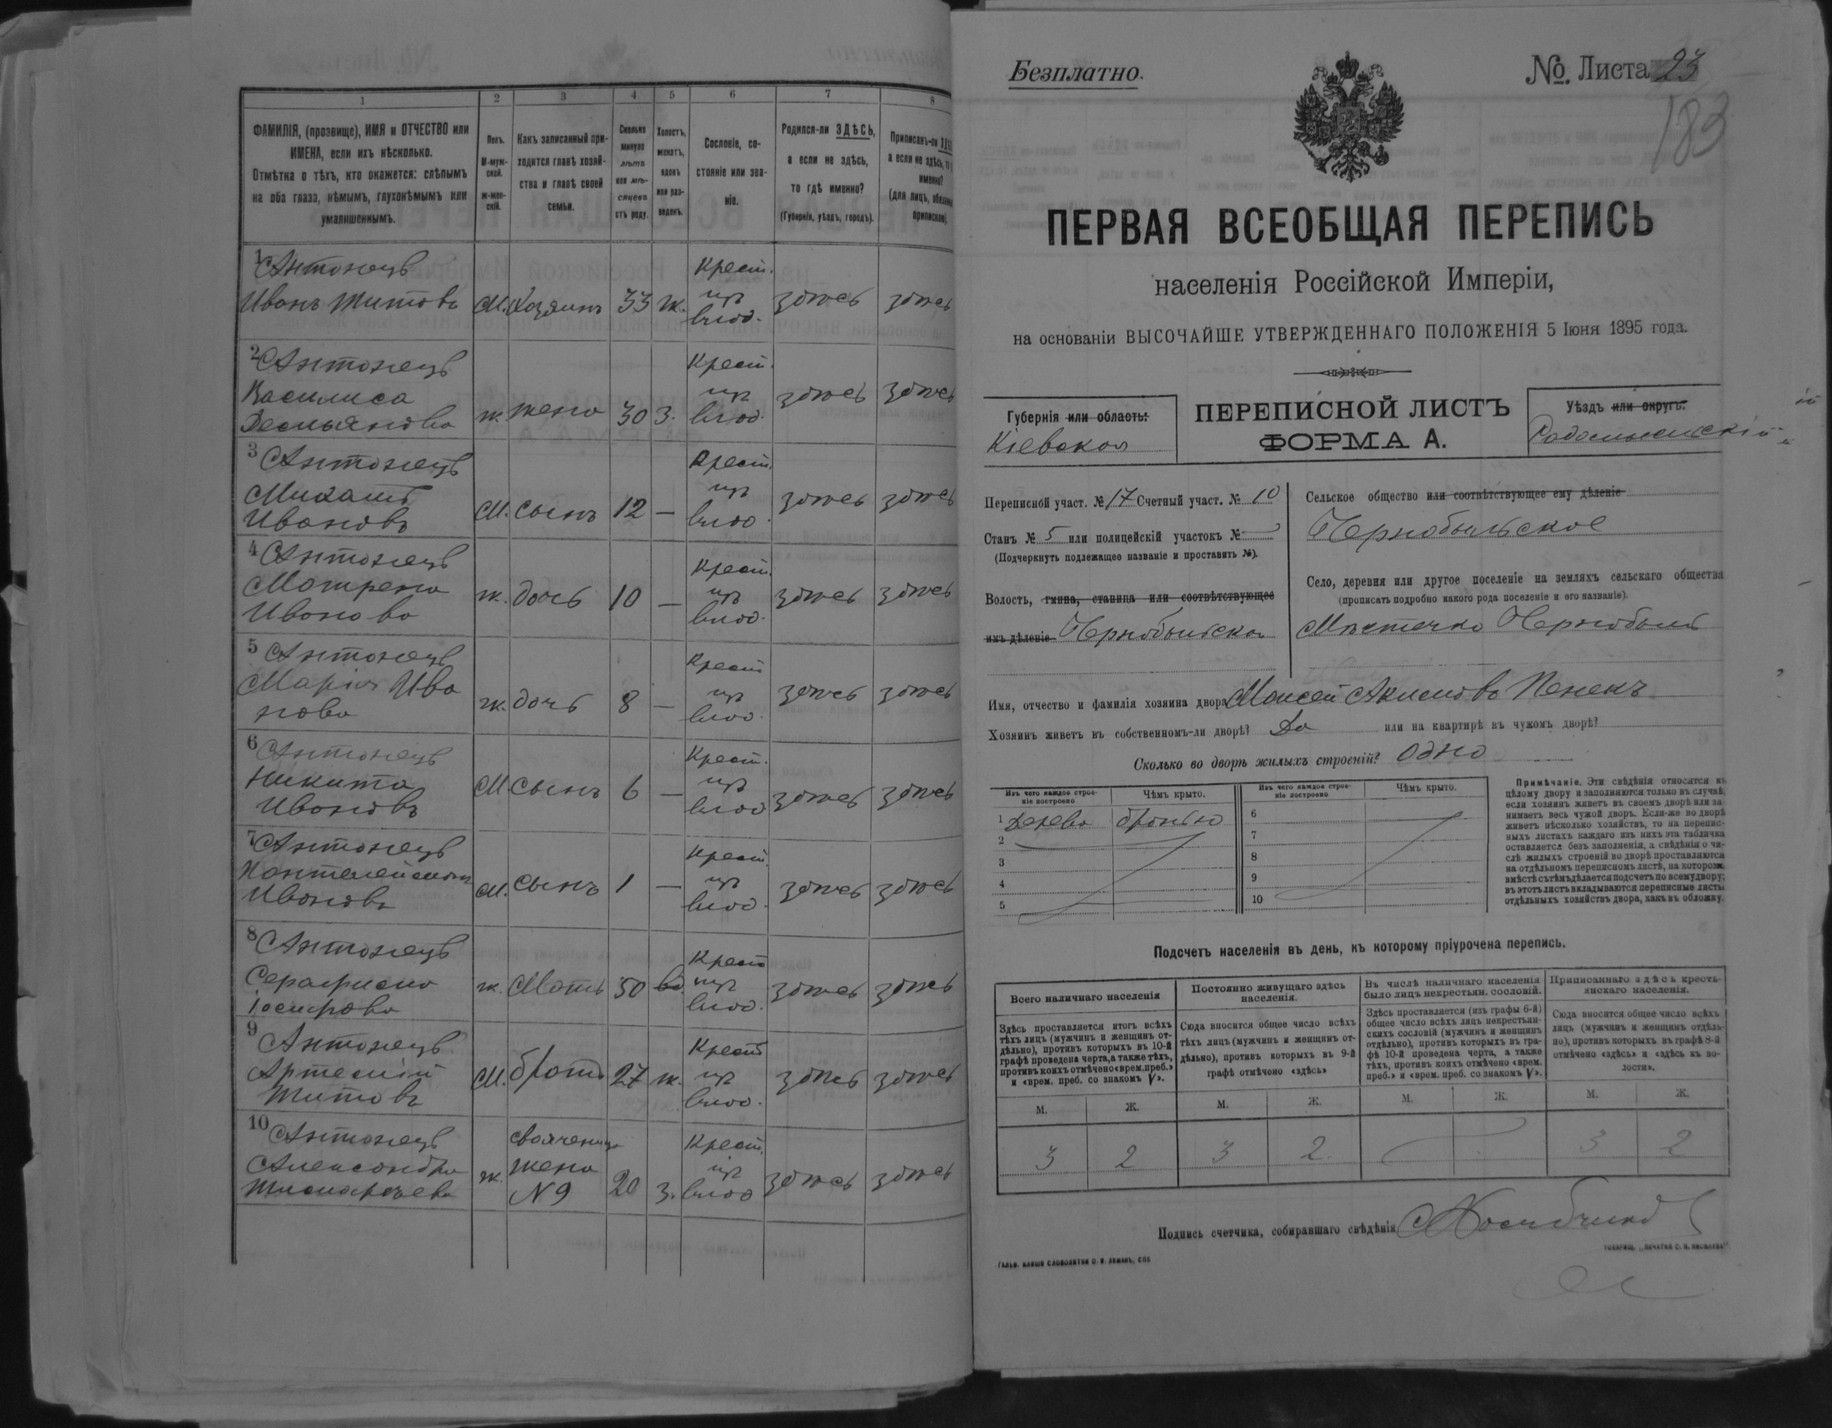 1 2 3 4 5 6 7 8
ФАМИЛІЯ, (прозвище), ИМЯ и ОТЧЕСТВО или
ИМЕНА, если ихъ нѣсколько.
Отмѣтка о тѣхъ, кто окажется: слѣпымъ
на оба глаза, нѣмымъ, глухонѣмымъ или
умалишеннымъ.
Полъ.
М-муж-
ской.
ж-жен-
скій.
Какъ записанный при-
ходится главѣ хозяй-
ства и главѣ своей
семьи.
Сколько
минуло
лѣтъ
или мѣ-
сяцевъ
отъ роду.
Холостъ,
женатъ,
вдовъ
или раз-
веденъ.
Сословіе, со-
стояніе или зва-
ніе.
Родился-ли ЗДѢСЬ,
а если не здѣсь,
то гдѣ именно?
(Губернія, уѣздъ, городъ).
Приписанъ-ли
а если не здѣсь, то
именно?
(для лицъ,
припискою)
1 Антонецъ
Иванъ Титовъ М. Хозяинъ 33 ж. Крест. изъ влад. здѣсь здѣсь
2 Антонецъ
Василиса
Демьянова ж. жена 30 з. Крест. изъ влад. здѣсь здѣсь
3 Антонецъ
Михаилъ
Ивановъ М. сынъ 12 — Крест. изъ влад. здѣсь здѣсь
4 Антонецъ
Матрена
Иванова ж. дочь 10 — Крест. изъ влад. здѣсь здѣсь
5 Антонецъ
Марія Ива
нова ж. дочь 8 — Крест изъ влад. здѣсь здѣсь
6 Антонецъ
Никита
Ивановъ М. сынъ 6 — Крест. изъ влад здѣсь здѣсь
7 Антонецъ
Пантелеймонъ
Ивановъ М. сынъ 1 — Крест. изъ влад. здѣсь здѣсь
8 Антонецъ
Серафима
Іосифова ж. Мать 50 вд. Крест изъ влад. здѣсь здѣсь
9 Антонецъ
Артемій
Титовъ М. братъ 27 ж. Крест изъ влад. здѣсь здѣсь
10 Антонецъ
Александра
ж. свояченица жена №9 20 з. Крест. изъ влад здѣсь здѣсь
Безплатно.
№. Листа 23
183
ПЕРВАЯ ВСЕОБЩАЯ ПЕРЕПИСЬ
населенія Россійской Имперіи,
на основаніи ВЫСОЧАЙШЕ УТВЕРЖДЕННАГО ПОЛОЖЕНІЯ 5 Іюня 1895 года.
Губернія или область:
Кіевская
ПЕРЕПИСНОЙ ЛИСТЪ
ФОРМА А.
Уѣздъ или округъ:
Радомысльскій
Переписной участ. № 17 Счетный участ. № 10
Станъ № 5 или полицейскій участокъ №
(Подчеркнуть подлежащее названіе и проставить №).
Волость, гмина, станица или соотвѣтствующее
имъ дѣленіе Чернобыльская
Сельское общество или соотвѣтствующее ему дѣленіе
Чернобыльское
Село, деревня или другое поселеніе на земляхъ сельскаго общества
(прописать подробно какого рода поселеніе и его названіе).
Мѣстечко Чернобыль
Имя, отчество и фамилія хозяина двора Моисей Акимовъ Пенекъ
Хозяинъ живетъ въ собственномъ-ли дворѣ? Да или на квартирѣ въ чужомъ дворѣ?
Сколько во дворѣ жилыхъ строеній? Одно
Изъ чего каждое строе-
ніе построено
Чѣмъ крыто.
Изъ чего каждое строе-
ніе построено
Чѣмъ крыто.
1 Дерева дранью
2
3
4
5
6
7
8
9
10
Примѣчаніе. Эти свѣдѣнія относятся къ
цѣлому двору и заполняются только въ случаѣ,
если хозяинъ живетъ въ своемъ дворѣ или за-
нимаетъ весь чужой дворъ. Если-же во дворѣ
живетъ нѣсколько хозяйствъ, то на перепис-
ныхъ листахъ каждаго изъ нихъ эта табличка
оставляется безъ заполненія, а свѣдѣнія о чи-
слѣ жилыхъ строеній во дворѣ проставляются
на отдѣльномъ переписномъ листѣ, на которомъ
вмѣстѣ съ тѣмъ дѣлается подсчетъ по всему двору;
въ этотъ листъ вкладываются переписные листы
отдѣльныхъ хозяйствъ двора, какъ въ обложку.
Подсчетъ населенія въ день, къ которому пріурочена перепись.
Всего наличнаго населенія
Постоянно живущаго здѣсь
населенія.
Въ числѣ наличнаго населенія
было лицъ некрестьян. сословій.
Приписаннаго здѣсь кресть-
янскаго населенія.
Здѣсь проставляется итогъ всѣхъ
тѣхъ лицъ (мужчинъ и женщинъ от-
дѣльно), противъ которыхъ въ 10-й
графѣ проведена черта, а также тѣхъ,
противъ коихъ отмѣчено «врем. преб.»
и «врем. преб. со знакомъ V».
Сюда вносится общее число всѣхъ
тѣхъ лицъ (мужчинъ и женщинъ от-
дѣльно), противъ которыхъ въ 9-й
графѣ отмѣчено «здѣсь»
Здѣсь проставляется (изъ графы 6-й)
общее число всѣхъ лицъ некрестьян-
скихъ сословій (мужчинъ и женщинъ
отдѣльно), противъ которыхъ въ гра-
фѣ 10-й проведена черта, а также
тѣхъ, противъ коихъ отмѣчено «врем.
преб.» и «врем. преб. со знакомъ V».
Сюда вносится общее число всѣхъ
лицъ (мужчинъ и женщинъ отдѣль-
но), противъ которыхъ въ графѣ 8-й
отмѣчено «здѣсь» и «здѣсь къ во-
лости».
М. Ж. М. Ж. М. Ж. М. Ж.
3 2 3 2 3 2
Подпись счетчика, собиравшаго свѣдѣнія